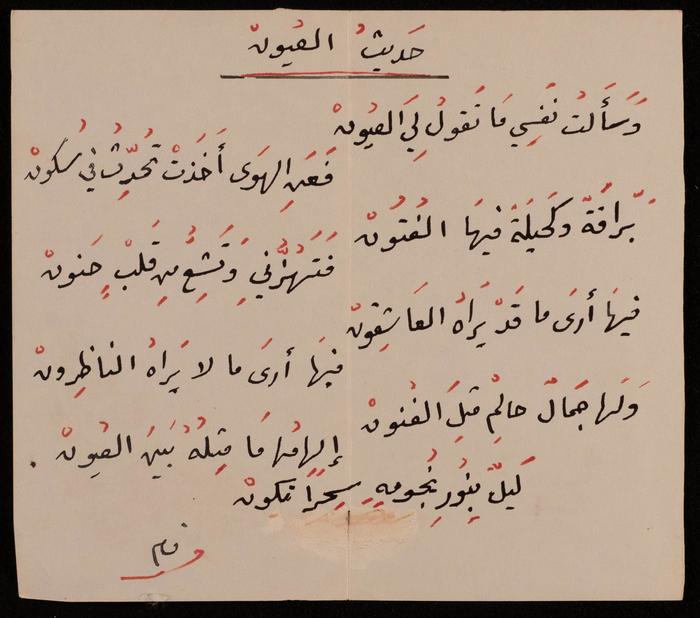 حَديثُ العيون
وَسَأَلتُ نَفسِي مَا تَقولُ لِيَ العيونْ
فَعَنِ الهَوَى أَخَذَتْ تُحَدِّثُ في سُكونْ
بَرّاقَةٌ وكَحيلَةٌ فيهَا الفُتُونْ
فَتَهُزُّني وَتَشِعُّ مِن قَلْبٍ حَنونْ
فيهَا أرَى ما قَدْ يَراهُ العَاشِقونْ
فيهَا أرَى مَا لا يَراهُ الناظِرونْ
وَلَها جَمَالٌ حالِمٌ مِثلَ الفُنونْ
إلهامُها مَا مِثلُهُ بَينَ العُيونْ .
لَيلٌ بِنُورِ نُجومِهِ سِحرًا يَكونْ